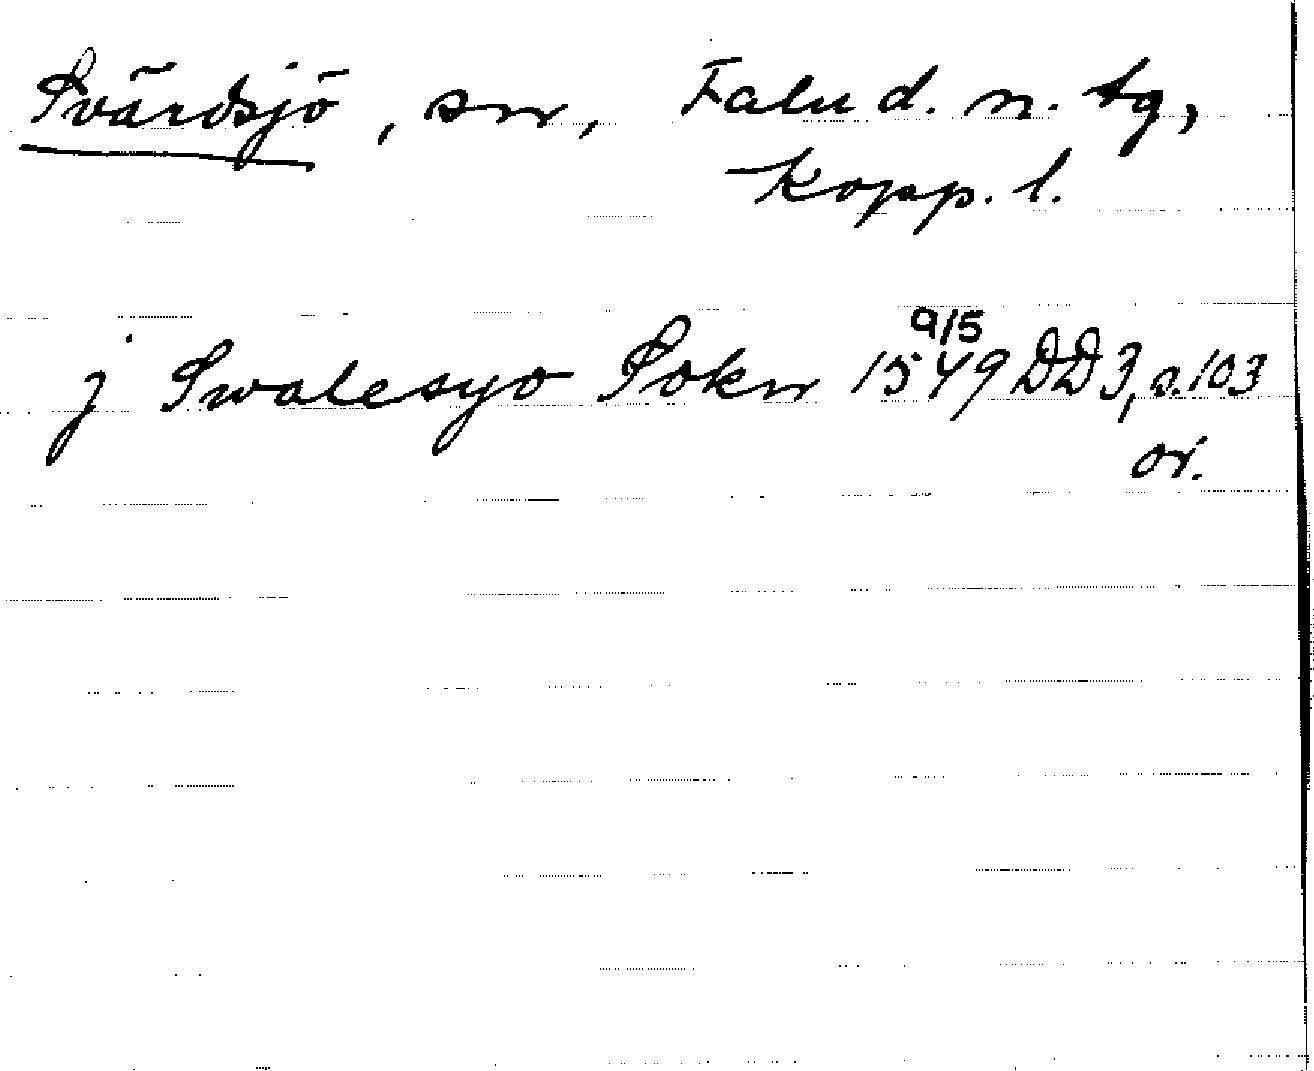 Svärdsjö, sn, Falu d. n. tg,
Kopp. l.
j Swalesyo Sokn 1549 9/5 DD 3, s. 103
or.